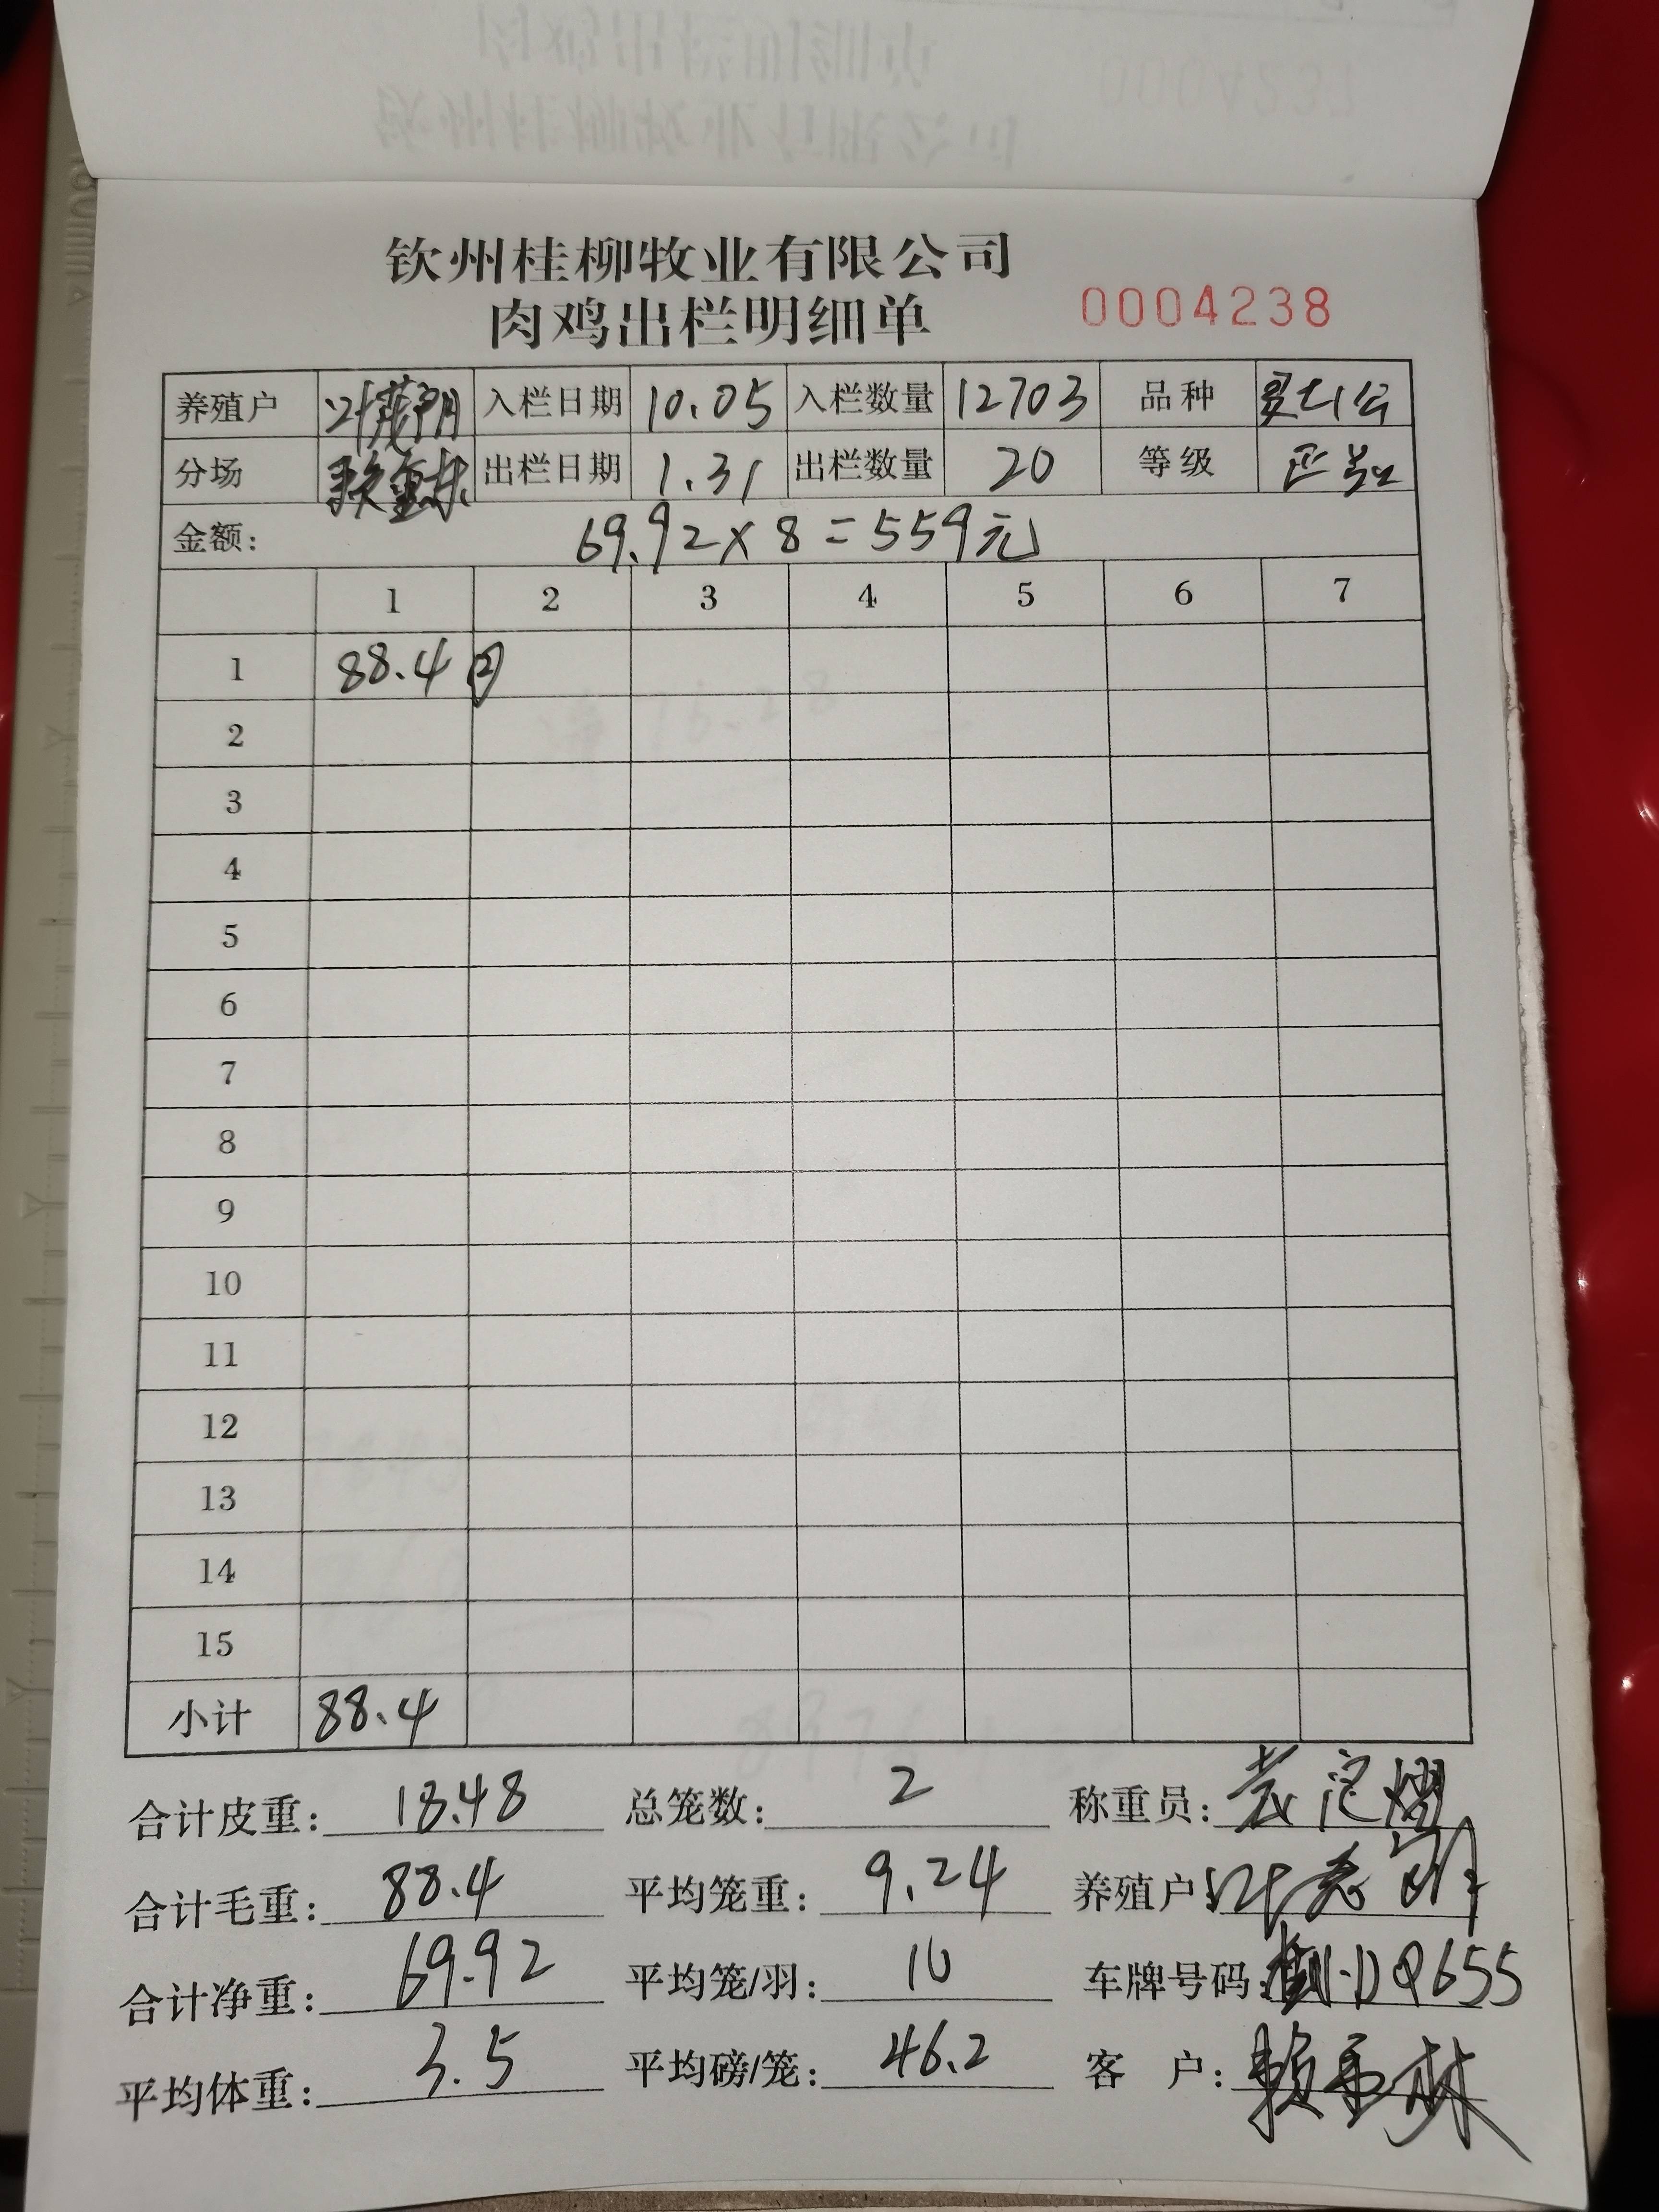 钦州桂柳牧业有限公司
肉鸡出栏明细单 0004238
养殖户 叶茂明 入栏日期 10.05 入栏数量 12703 品种
分场 出栏日期 1.31 出栏数量 20 等级
金额: 69.92×8=559元
1 2 3 4 5 6 7
1 88.4 ②
2
3
4
5
6
7
8
9
10
11
12
13
14
15
小计 88.4
合计皮重: 18.48 总笼数: 2 称重员:
合计毛重: 88.4 平均笼重: 9.24 养殖户:
合计净重: 69.92 平均笼/羽: 10 车牌号码: Q655
平均体重: 3.5 平均磅/笼: 46.2 客 户: